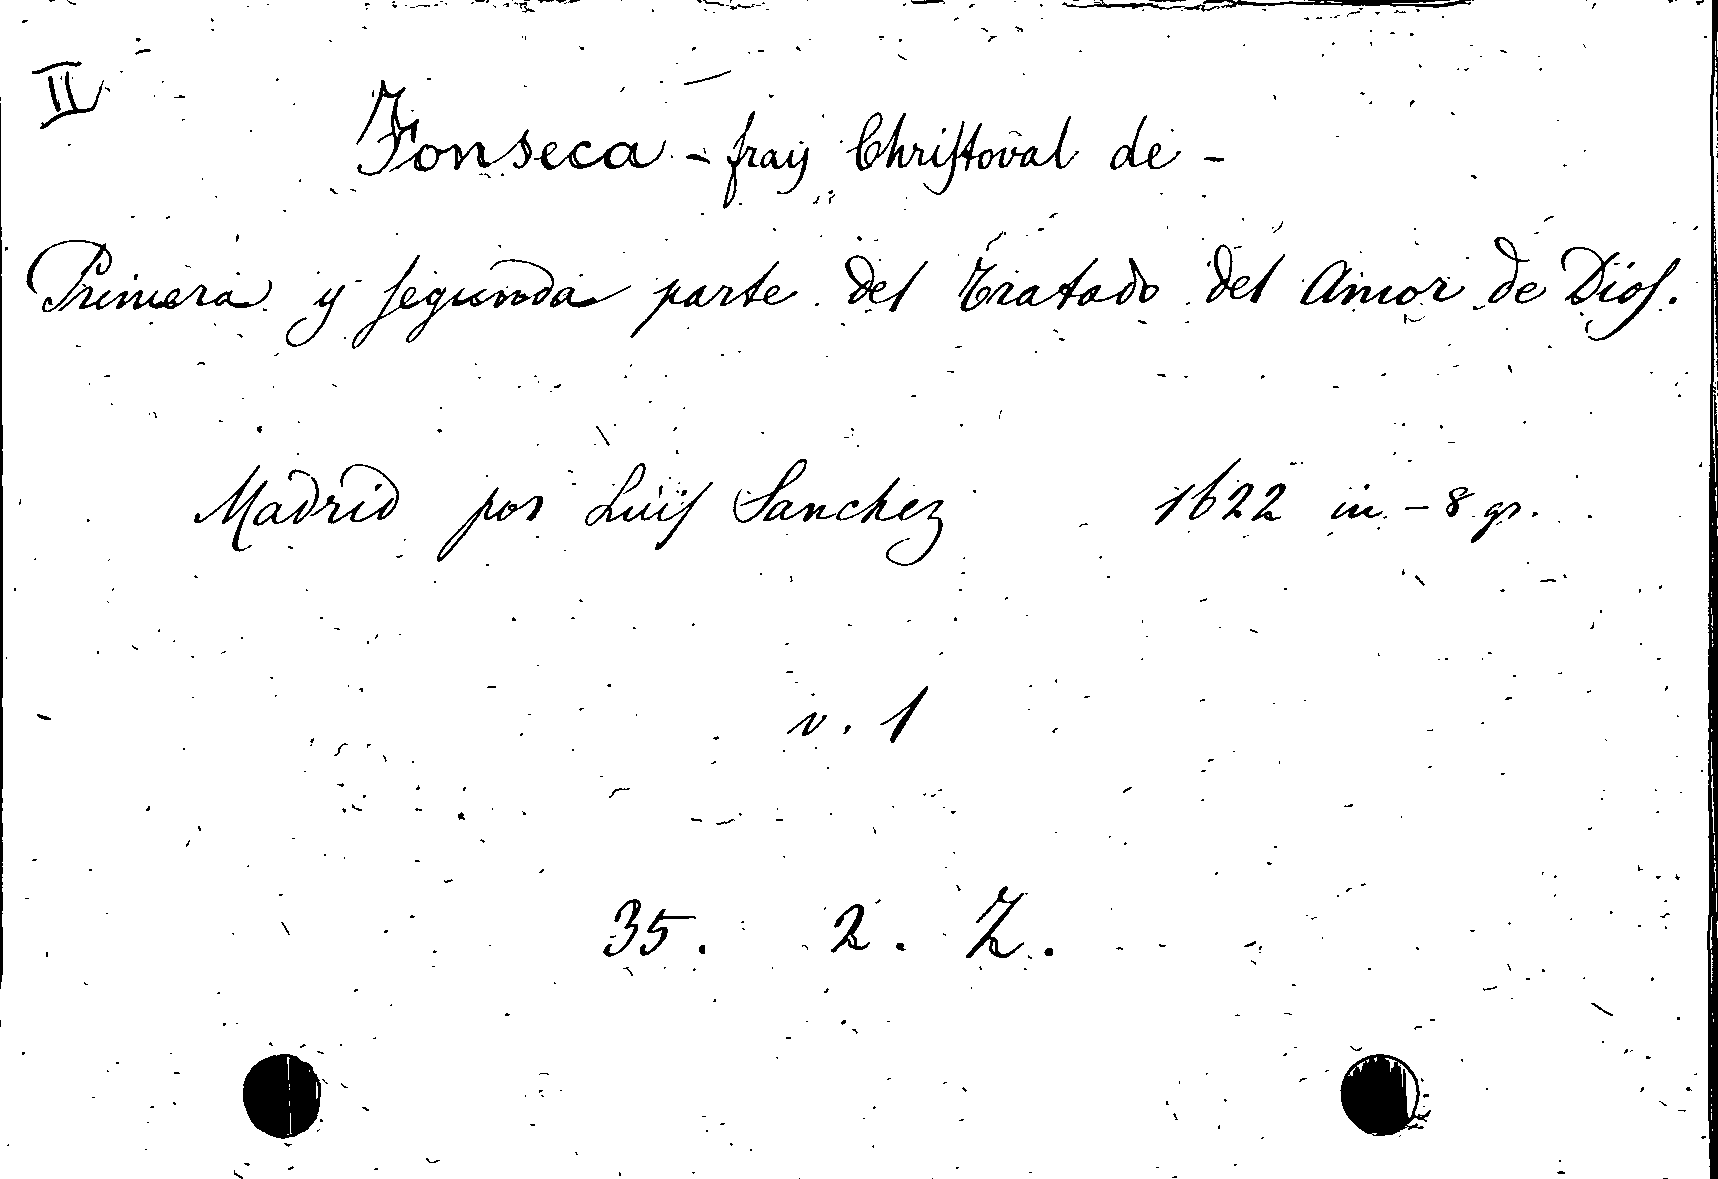 II
Fonseca - fray Chriſtoval de -
Primera y ſegunda parte del Tratado del Amor de Dioſ.
Madrid por Luiſ Sanchez 1622 in - 8 gr.
v. 1
35. 2. Z.